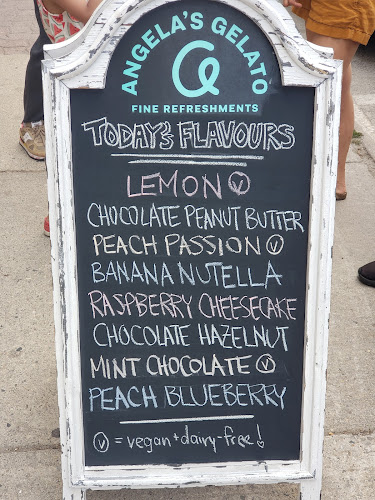 ANGELA'S GELATO
FINE REFRESHMENTS
TODAY'S FLAVOURS
LEMON Ⓥ
CHOCOLATE PEANUT BUTTER
PEACH PASSION Ⓥ
BANANA NUTELLA
RASPBERRY CHEESECAKE
CHOCOLATE HAZELNUT
MINT CHOCOLATE Ⓥ
PEACH BLUEBERRY
Ⓥ = vegan + dairy-free!